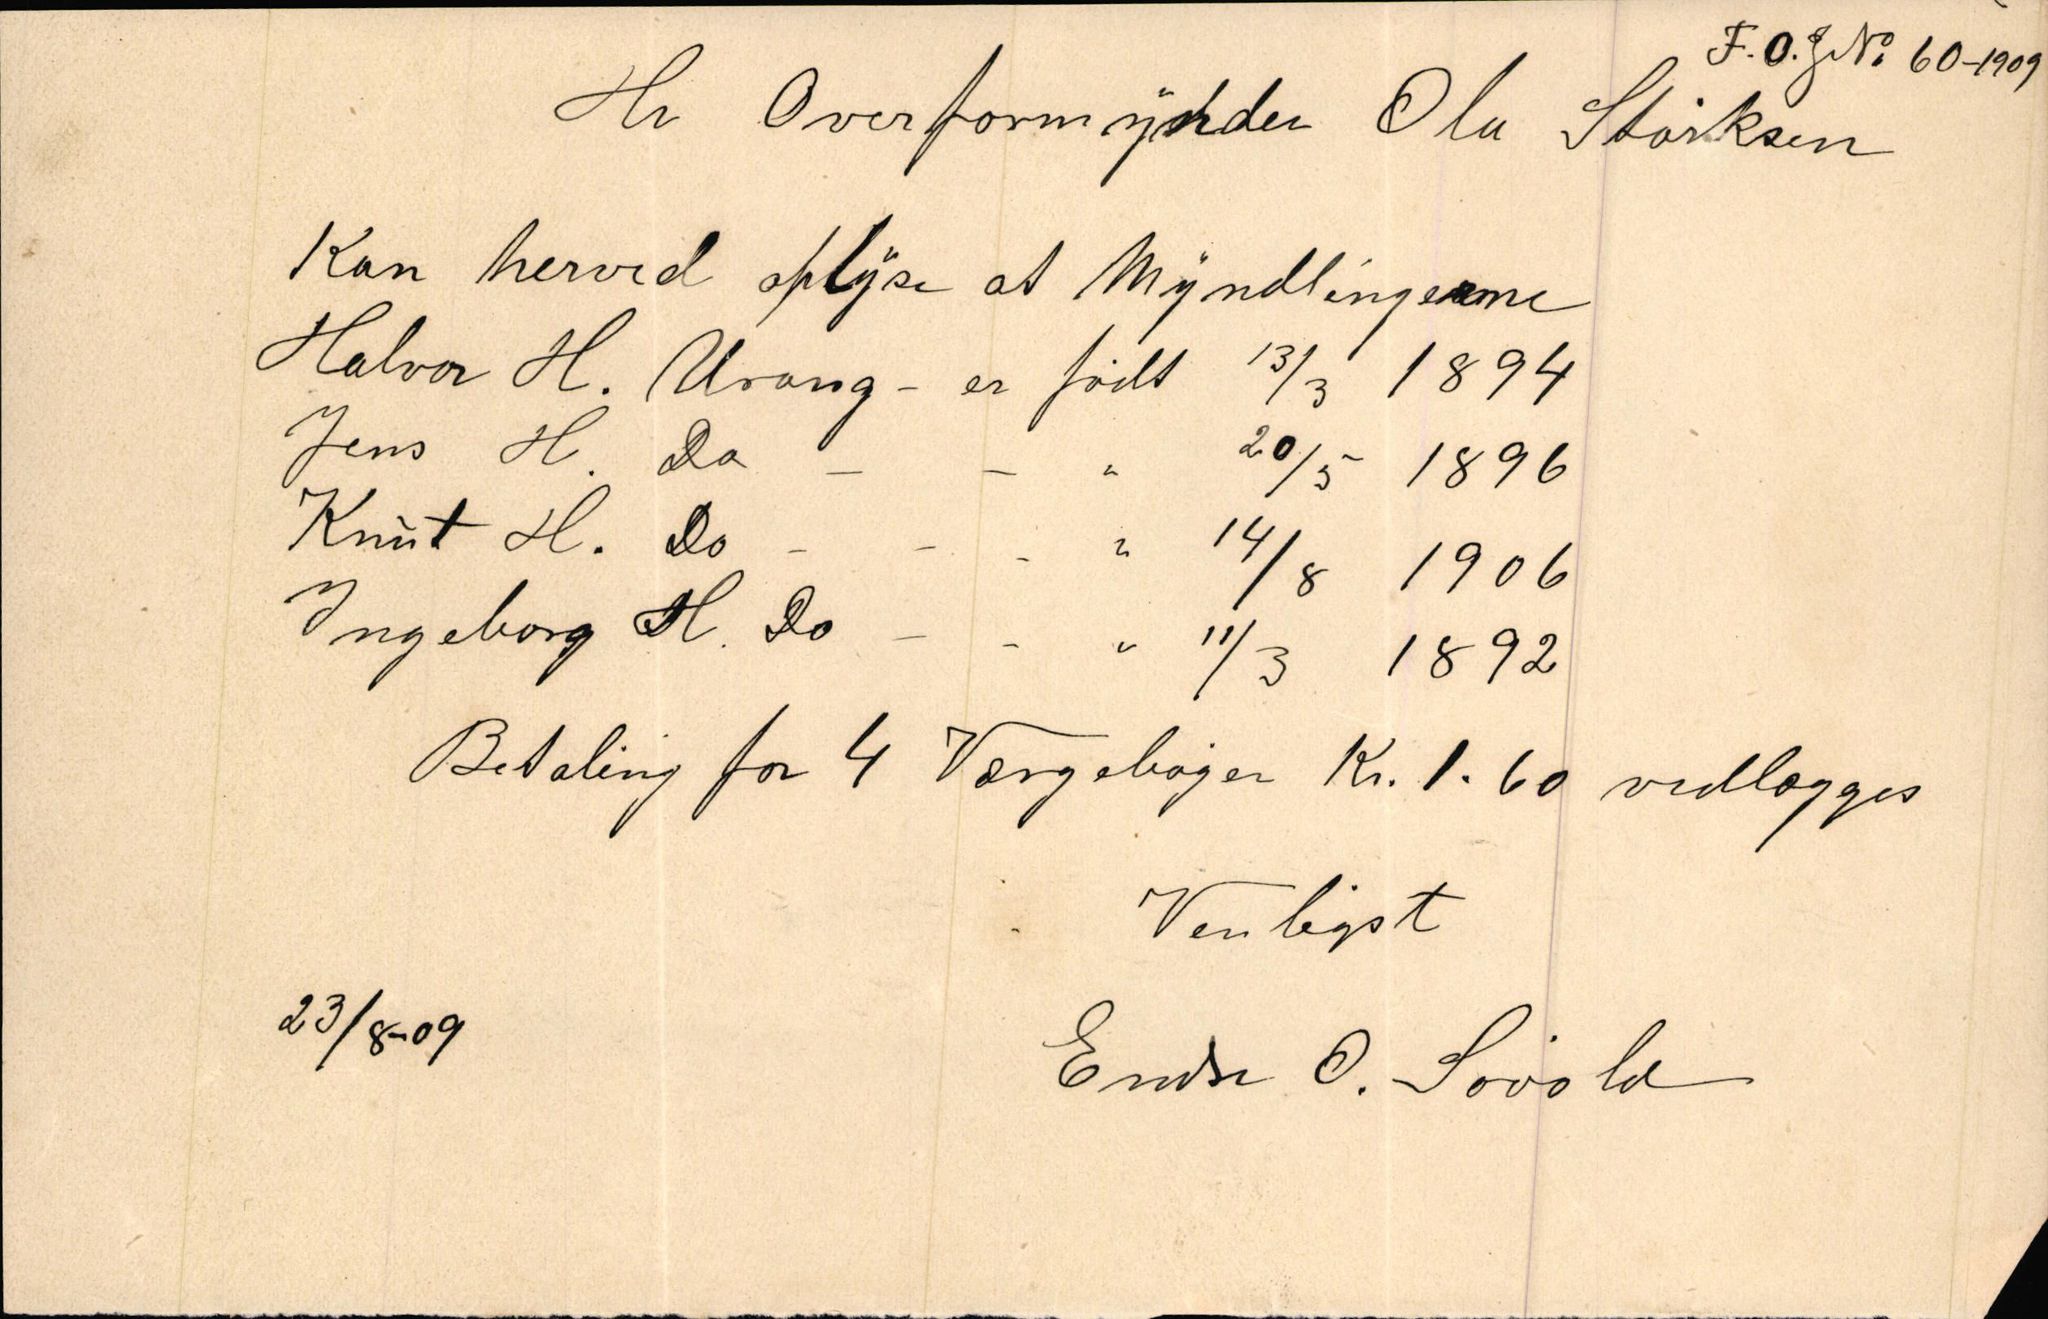 F. O. J No. 60-1909
Hr Overformynder Ola Störksen
Kan herved oplyse at Myndlingerne
Halvor H. Urang - er födt 13/3 1894
Jens H. Do - - " 20/5 1896
Knut H. Do - - - " 14/8 1906
Ingeborg H. Do - - " 11/3 1892
Betaling for 4 Værgebøger Kr. 1.60 vedlægges
Venligst
23/8-09
Endre O. Sövold